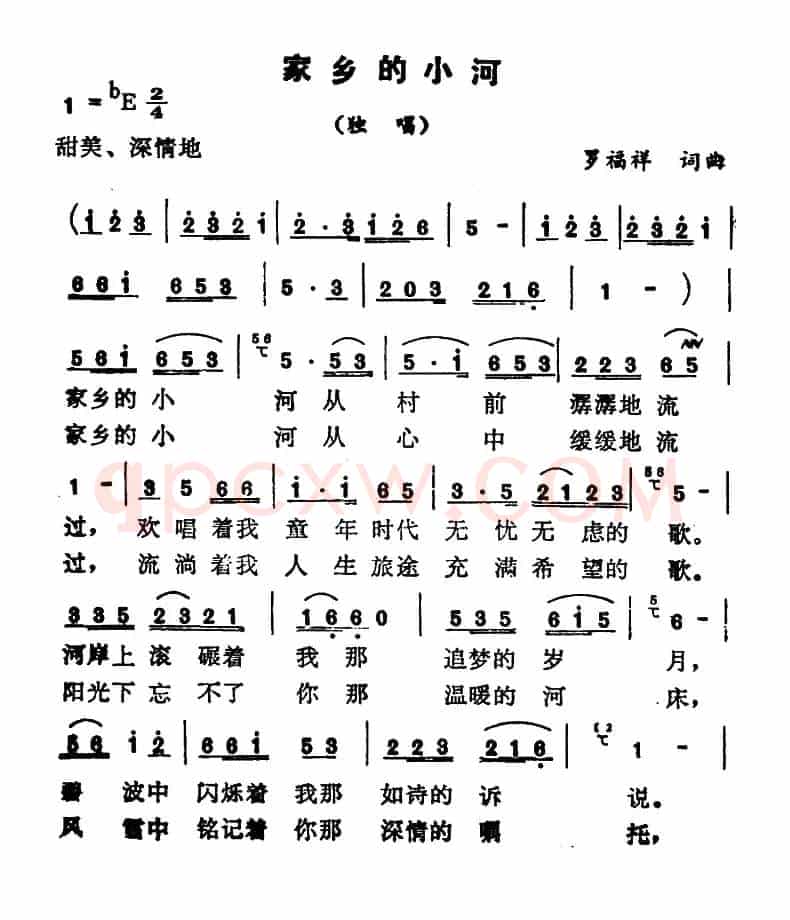 家乡的小河
1=bE 2/4
（独 唱）
甜美、深情地
罗福祥 词曲
(i 2 3 | 2 3 2 i | 2 · 3 i 2 6 | 5 - | i 2 3 | 2 3 2 i |
6 6 i 6 5 3 | 5 · 3 | 2 0 3 2 1 6 | 1 - )
5 6 i 6 5 3 | 5 · 5 3 | 5 · i 6 5 3 | 2 2 3 6 5 |
家乡的 小 河 从 村 前 潺潺地 流
家乡的 小 河 从 心 中 缓缓地 流
1 - | 3 5 6 6 | i · i 6 5 | 3 · 5 2 1 2 3 | 5 - |
过, 欢 唱 着我 童 年 时代 无 忧 无 虑的 歌。
过, 流 淌 着我 人 生 旅途 充 满 希 望的 歌。
qpcxw.COM
3 3 5 2 3 2 1 | 1 6 6 0 | 5 3 5 6 i 5 | 6 - |
河岸上 滚 碾着 我 那 追梦的 岁 月,
阳光下 忘 不了 你 那 温暖的 河 床,
5 6 i 2 | 6 6 i 5 3 | 2 2 3 2 1 6 | 1 - |
碧 波中 闪烁着 我那 如诗的 诉 说。
风 雪中 铭记着 你那 深情的 嘱 托,